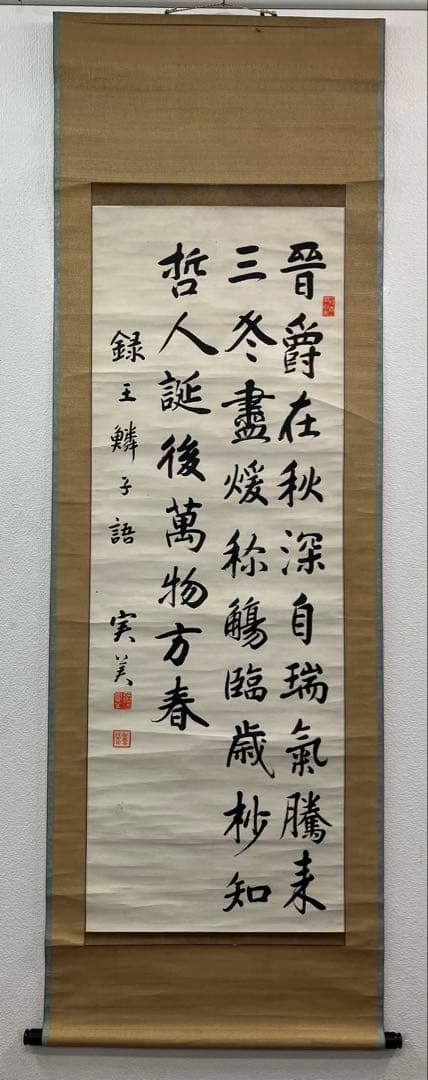 晉爵在秋深自瑞氣騰来
三冬盡煖称觴臨歳杪知
哲人誕後萬物方春
録王鱗子語
実美